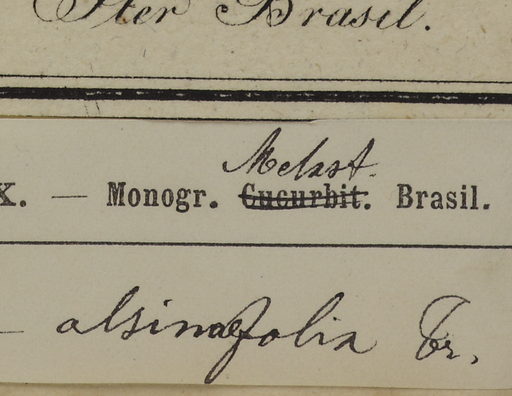 Iter Brasil.
X. — Monogr. Melast. Cucurbit. Brasil.
— alsinaefolia Tr.